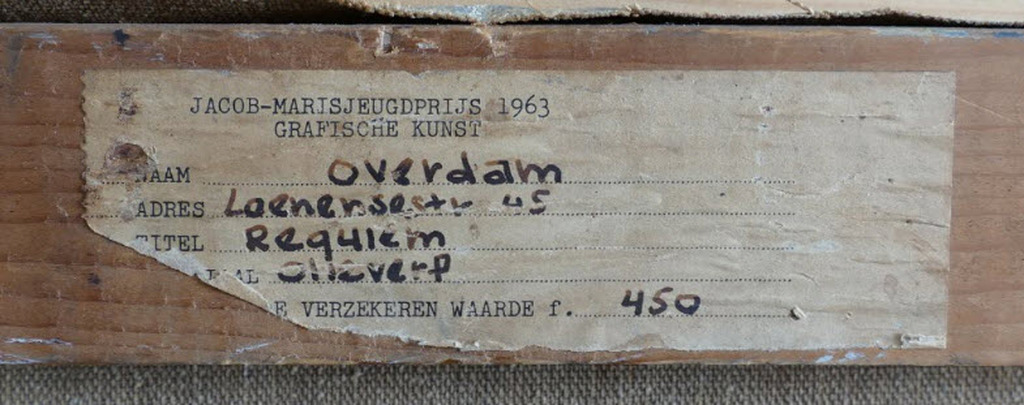 JACOB-MARISJEUGDPRIJS 1963
GRAFISCHE KUNST
NAAM Overdam
ADRES Loenensestr 45
TITEL Requiem
AL olieverf
E VERZEKEREN WAARDE f. 450